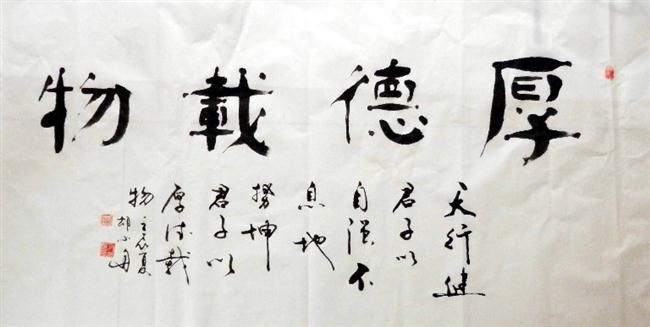 厚德載物
天行健
君子以
自強不
息地
勢坤
君子以
厚德載
物 壬辰夏